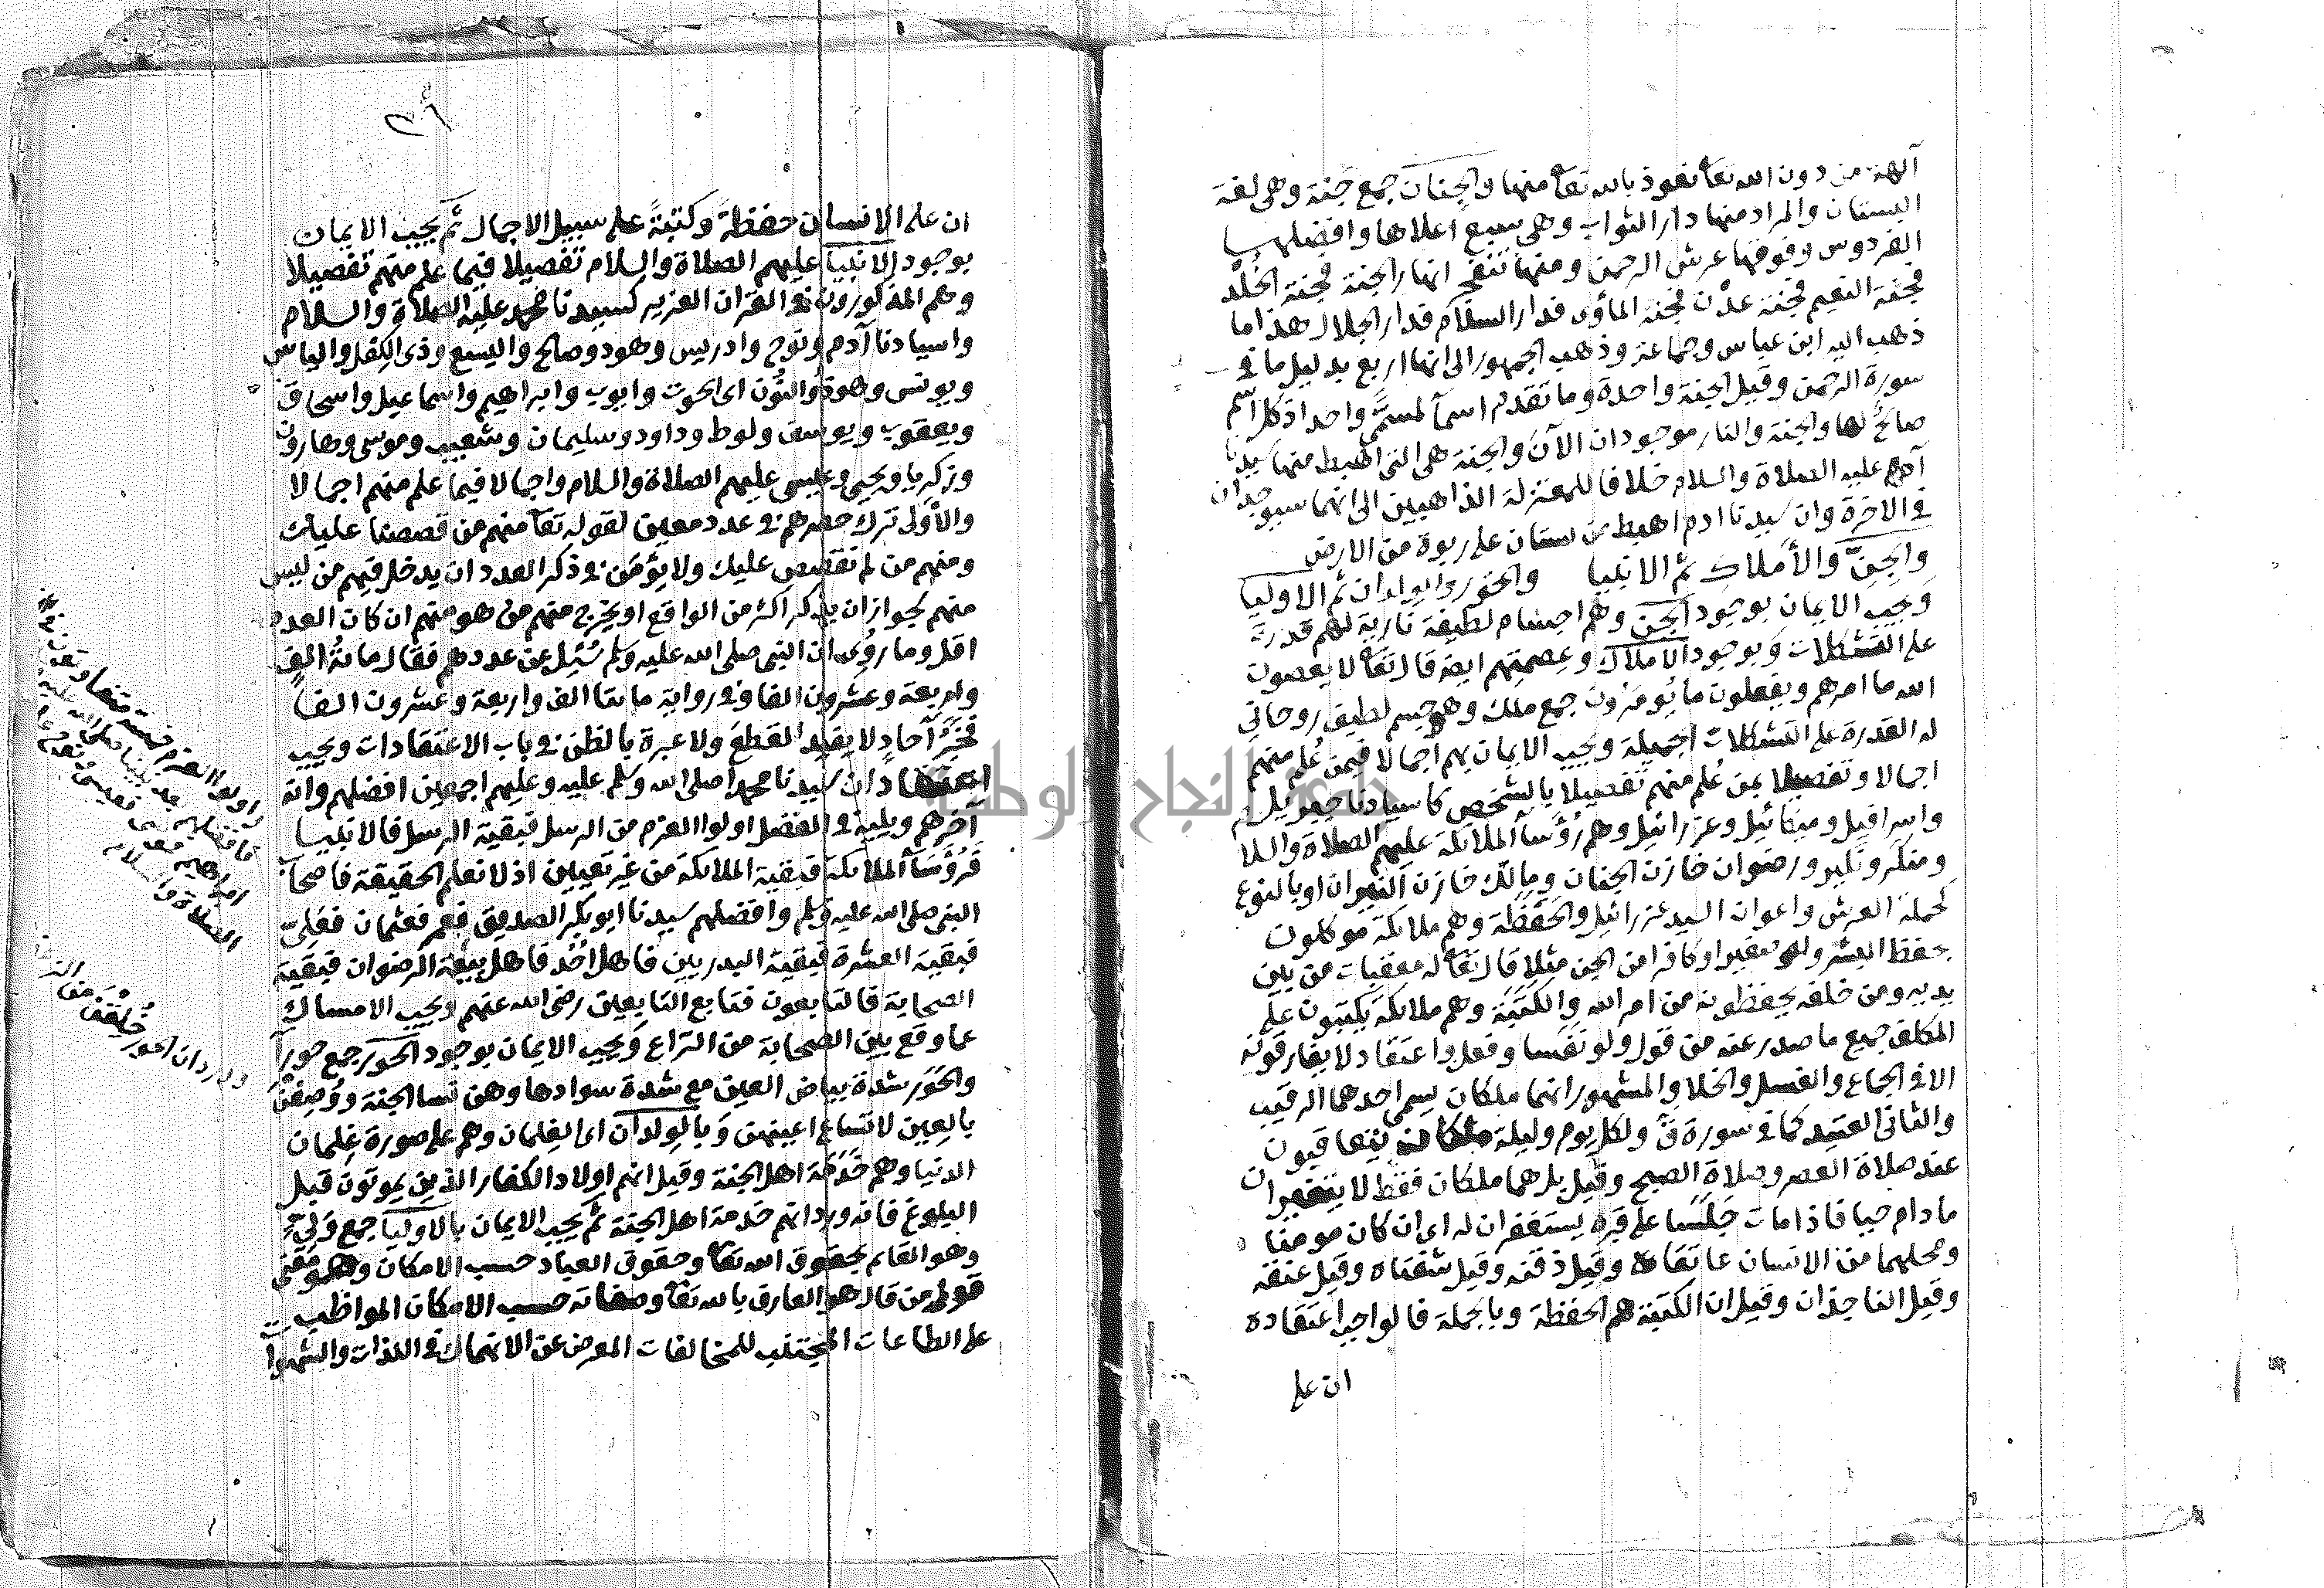 آلهة من دون الله تعا نعوذ بالله تعا منها والجنان جمع جنة وهى لغة
البستان والمراد منها دار الثواب وهى سبع اعلاها وافضلها
الفردوس وفوقها عرش الرحمن ومنها تنفجر انهار الجنة فجنة الخُلْد
فجنة النعيم فجنة عدْن فجنة المأوى فدار السلام فدار الجلال هذا ما
ذهب اليه ابن عباس وجماعة وذهب الجمهور الى انها اربع بدليل ما فى
سورة الرحمن وقيل الجنة واحدة وما تقدم اسمآ لمسمًّى واحد اذ كل اسم
صالحٌ لها والجنة والنار موجودان الآن والجنة هى التى اهبط منها سيدنا
آدم عليه الصلاة والسلام خلافا للمعتزلة الذاهبين الى انهما سيوجدان
فى الاخرة وان سيدنا ادم اهبط من بستان على ربوة من الارض
والجِنّ والأملاك ثم الانبيا والحور والولدان ثم الاوليا
ويجب الايمان بوجود الجن وهم اجسام لطيفة نارية لهم قدرة
على التشكلات وبوجود الاملاك وعصمتهم ايضا قال تعا لا يعصون
الله ما امرهم ويفعلون ما يُومَرُون جمع ملك وهو جسم لطيف روحانى
له القدرة على التشكلات الجميلة ويجب الايمان بهم اجمالا فيمن عُلم منهم
اجمالا وتفصيلا بمن عُلم منهم تفصيلا بالشخص كاسيادنا جبرئيل
واسرافيل وميكائيل وعزرائيل وهم رُؤسآ الملائكة عليهم الصلاة والسلا
ومنكر ونكير ورضوان خازن الجنان ومالك خازن النيران او بالنوع
كحملة العرش واعوان السيد عزرائيل والحَفَظَة وهم ملائكة موكلون
بحفظ البشر ولو صغيرا او كافرا من الجن مثلا قال تعا له معقبات من بين
يديه ومن خلفه يحفظونه من امر الله والكَتَبَة وهم ملائكة يكتبون على
المكلف جميع ما صدر عنه من قول ولو نفسا وفعل واعتقاد لا يفارقونه
الا فى الجماع والغسل والخلا والمشهور انهما ملكان يسمى احدهما الرقيب
والثانى العتيد كما فى سورة ق ولكل يوم وليلة ملكان يتعاقبون
عند صلاة العصر وصلاة الصبح وقيل بل هما ملكان فقط لا يتغيران
ما دام حيا فاذا مات جَلَسَا على قبره يستغفران له اى ان كان مومنا
ومحلهما من الانسان عاتقاه وقيل ذقنه وقيل شفتاه وقيل عنقه
وقيل الناجذان وقيل ان الكتبة هم الحفظة وبالجملة فالواجب اعتقاده
ان على
٣٦
ان على الانسان حفظةً وكتبةً على سبيل الاجمال ثم يجب الايمان
بوجود الانبيا عليهم الصلاة والسلام تفصيلا فيما علم منهم تفصيلا
وهم المذكورون فى القران العزيز كسيدنا محمد عليه الصلاة والسلام
واسيادنا آدم ونوح وادريس وهود وصالح واليسع وذى الكِفل والياس
ويونس وهو ذُوالنُّون اى الحوت وايوب وابراهيم واسماعيل واسحاق
ويعقوب ويوسف ولوط وداود وسليمان وشعيب وموسى وهارون
وزكريا ويحيى وعيسى عليهم الصلاة والسلام واجمالا فيما علم منهم اجمالا
والأولى ترك حصرهم فى عدد معين لقوله تعا منهم من قصصنا عليك
ومنهم من لم نقصص عليك ولا يُؤمَن فى ذكر العدد ان يدخل فيهم من ليس
منهم لجواز ان يذكر اكثر من الواقع او يخرج منهم من هو منهم ان كان العدد
اقل وما رُوِىَ ان النبى صلى الله عليه وسلم سُئِل عن عددهم فقال مائةُ الفٍ
واربعة وعشرون الفا وفى رواية مائتا الف واربعة وعشرون الفا
فخبرُ آحادٍ لا يفيد القطعَ ولا عبرة بالظن فى باب الاعتقادات ويجب
اعتقاد ان سيدنا محمد اصلى الله وسلم عليه وعليهم اجمعين افضلهم وانه
آخرهم ويليه فى الفضل اولوا العزم من الرسل فبقية الرسل فالانبيا
فرُؤَسَآ الملائكة فبقية الملائكة من غير تعيين اذ لا نعلم الحقيقة فاصحاب
النبى صلى الله عليه وسلم وافضلهم سيدنا ابو بكر الصديق فعمر فعثمان فعَلِىّ
فبقية العشرة فبقية البدريين فاهل اُحُد فاهل بيعة الرضوان فبقية
الصحابة فالتابعون فتابع التابعين رضى الله عنهم ويجب الامساك
عما وقع بين الصحابة من النزاع ويجب الايمان بوجود الحور جمع حورآ
والحَوَر شدة بياض العين مع شدة سوادها وهن نسا الجنة ووُصِفْنَ
بالعِين لاتساع اعينهن وبالولدان اى الغلمان وهم على صورة غلمان
الدنيا وهم خَدَمَة اهل الجنة وقيل انهم اولاد الكفار الذين يموتون قبل
البلوغ فانه ورد انهم خدمة اهل الجنة ثم يجب الايمان بالاوليآ جمع وَلِىّ
وهو القائم بحقوق الله تعا وحقوق العباد حسب الامكان وهو معنى
قول من قال هو العارف بالله تعا وصفاته حسب الامكان المواظب
على الطاعات المجتنب للمخالفات المعرض عن الانهماك فى اللذات والشهوات
اولوا العزم خمسة
فافضلهم نبينا صلى الله عليه
ابراهيم فموسى فعيسى
الصلاة والسلام
وورد ان الحور خُلِقْنَ من
جامعة النجاح الوطنية